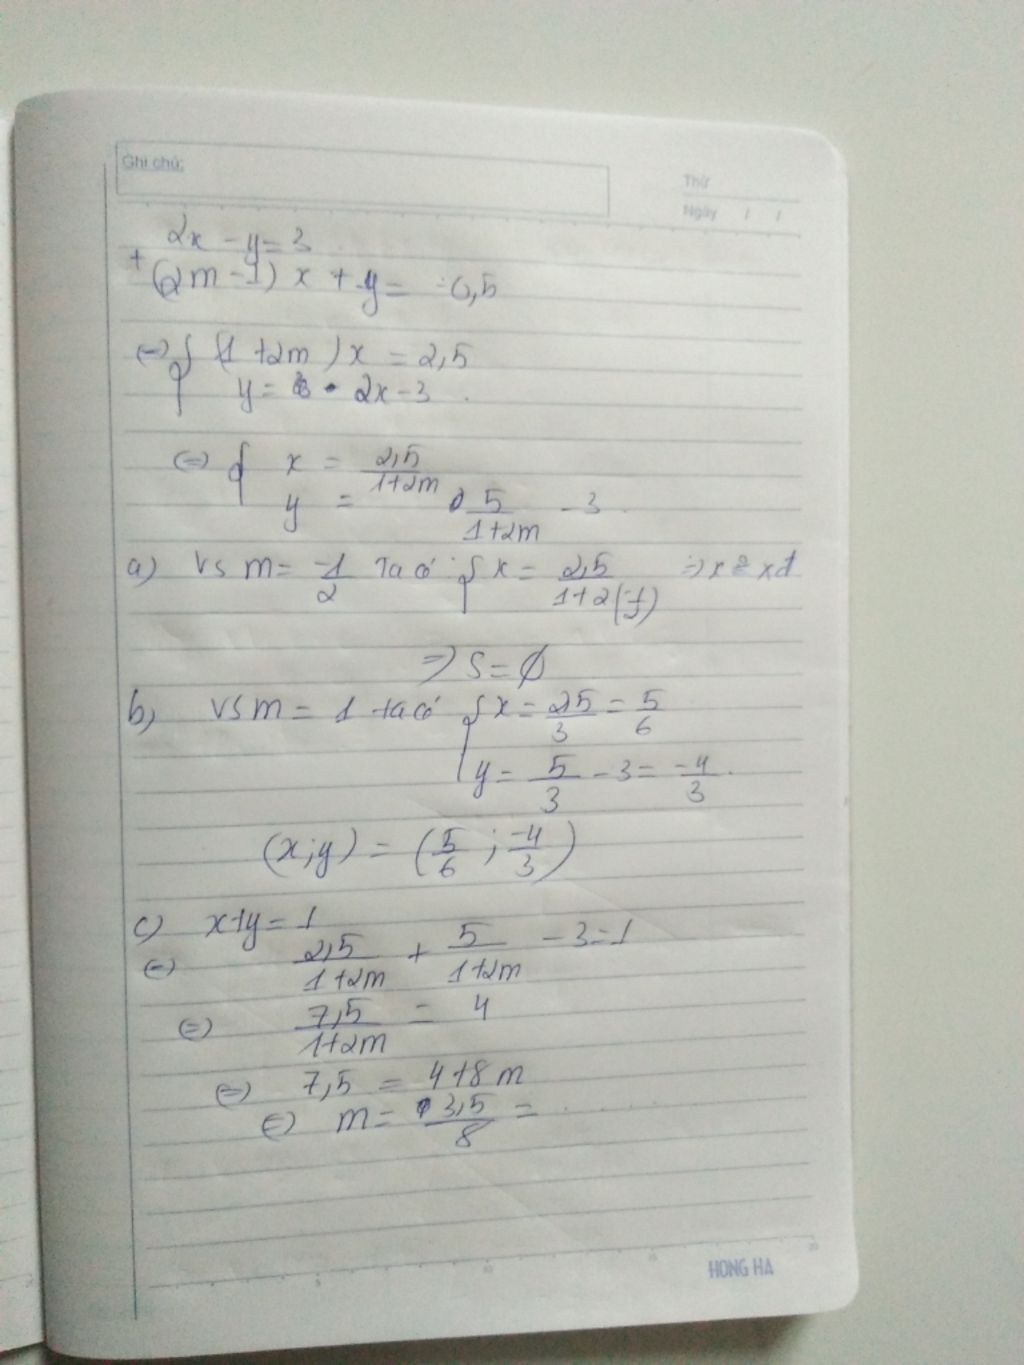 Ghi chú:
Thứ
Ngày / /
2x - y = 3
+ (2m - 1) x + y = -0,5
(=) { (1 + 2m) x = 2,5
y = 2x - 3
(=) { x = 2,5/(1+2m)
y = 5/(1+2m) - 3
a) Vs m = -1/2 Ta có { x = 2,5/(1+2(-1/2)) => x xđ
=> S = ∅
b) Vs m = 1 ta có { x = 2,5/3 = 5/6
y = 5/3 - 3 = -4/3
(x;y) = (5/6 ; -4/3)
c) x+y = 1
(=) 2,5/(1+2m) + 5/(1+2m) - 3 = 1
(=) 7,5/(1+2m) = 4
(=) 7,5 = 4+8m
(=) m = 3,5/8 = .....
5 10 15 20
HONG HA